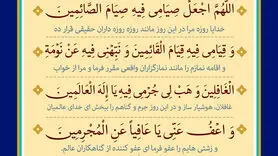 اللَّهُمَّ اجْعَلْ صِيَامِي فِيهِ صِيَامَ الصَّائِمِينَ
خدایا روزه مرا در این روز مانند روزه روزه داران حقیقی قرار ده
وَ قِيَامِي فِيهِ قِيَامَ الْقَائِمِينَ وَ نَبِّهْنِي فِيهِ عَنْ نَوْمَةِ
و اقامه نمازم را مانند نمازگزاران واقعی مقرر فرما و مرا از خواب
الْغَافِلِينَ وَ هَبْ لِي جُرْمِي فِيهِ يَا إِلَهَ الْعَالَمِينَ
غافلان، هوشیار ساز و در این روز جرم و گناهم را ببخش ای خدای عالمیان
وَ اعْفُ عَنِّي يَا عَافِياً عَنِ الْمُجْرِمِينَ
و زشتی هایم را عفو فرما ای عفو کننده از گناهکاران عالم.